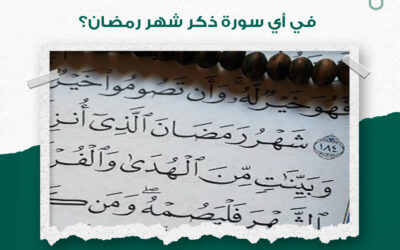 في أي سورة ذكر شهر رمضان؟
فَهُوَ خَيْرٌ لَّهُۥ وَأَن تَصُومُوا۟ خَيْرٌ
١٨٤ شَهْرُ رَمَضَانَ ٱلَّذِىٓ أُنزِ
وَبَيِّنَٰتٍ مِّنَ ٱلْهُدَىٰ وَٱلْفُرْ
ٱلشَّهْرَ فَلْيَصُمْهُ وَمَن كَ